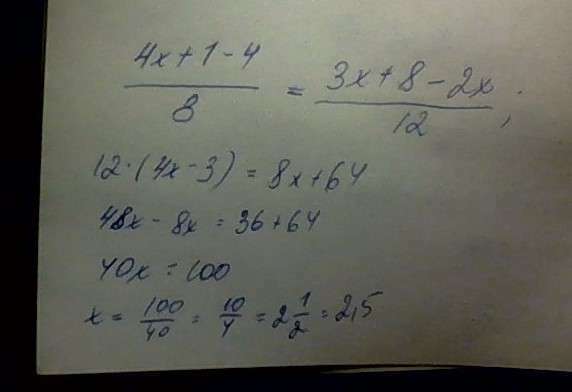 4x+1-4/8 = 3x+8-2x/12;
12·(4x-3) = 8x+64
48x-8x = 36+64
40x = 100
x = 100/40 = 10/4 = 2 1/2 = 2,5